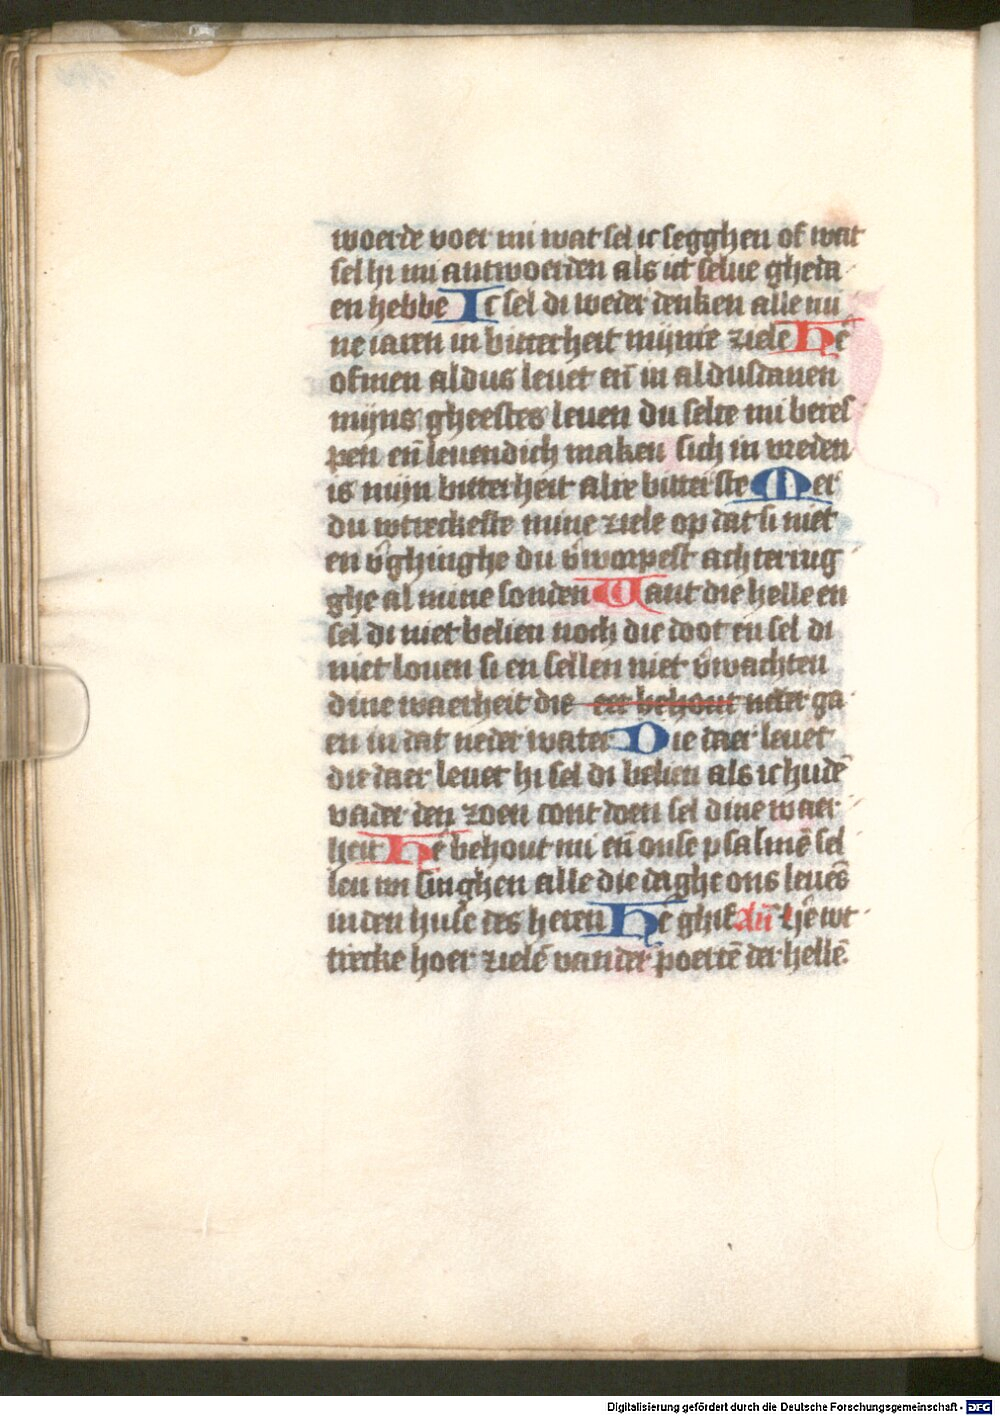 woerde voer mi wat sel ic segghen of wat
sel hi mi antwoerden als ict selue gheda
en hebbe Ic sel di weder denken alle mi
ne iaren in bitterheit mijnre ziele Hē
ofmen aldus leuet eñ in aldustanen
mijns gheestes leuen du selte mi beris
pen eñ leuendich maken sich in vreden
is mijn bitterheit alre bitterste Mer
du wtreckeste mine ziele op dat si niet
en v̄ghinghe du v̄worpest achter rug
ghe al mine sonden Want die helle en
sel di niet belien noch die doot en sel di
niet louen si en sellen niet v̄wachten
dine waerheit die en behout neder ga
en in dat neder water Die daer leuet
die daer leuet hi sel di belien als ic hudē
vader den zoen cont doen sel dine waer
heit Hē behout mi eñ onse psalmē sel
len wi singhen alle die daghe ons leuēs
in den huse des heren Hē ghif añ hē wt
trecke hoer zielē van der poertē der hellē.
Digitalisierung gefördert durch die Deutsche Forschungsgemeinschaft - DFG